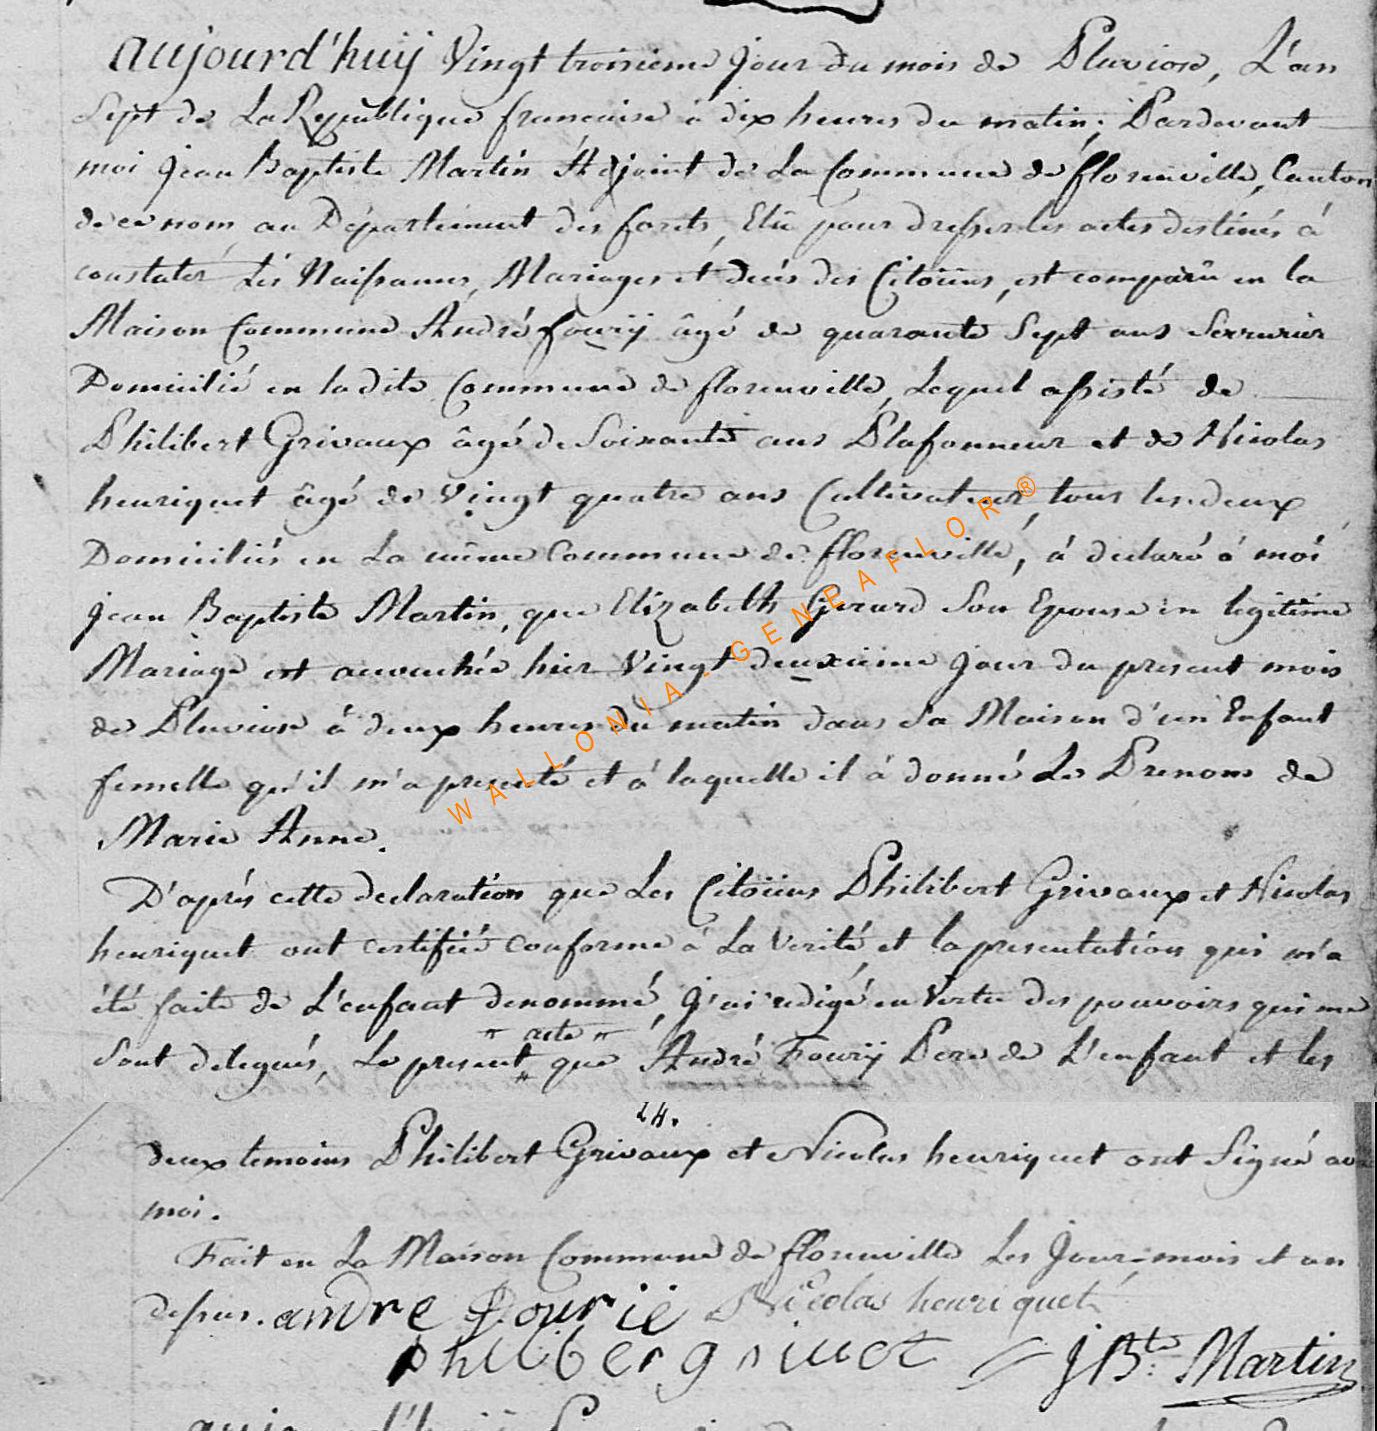 aujourd'huÿ Vingt troisieme jour du mois de Pluviose, L'an
Sept de La Republique francaise à dix heures du matin; Pardevant
moi Jean Baptiste Martin Adjoint de La Commune de florenville, Canton
de ce nom, au Département des forets, Elu pour dresser les actes destinés à
constater Les Naissances, Mariages et decés des Citoïens, est comparû en la
Maison Commune André fourÿ âgé de quarante Sept ans Serrurier
Domicilié en ladite Commune de florenville, Lequel assisté de
Philibert Grivaux âgé de Soixante ans Plafonneur et de Nicolas
henriquet âgé de Vingt quatre ans Cultivateur, tous les deux
Domiciliés en La même Commune de florenville, à declaré à moi
Jean Baptiste Martin, que Elizabeth Gerard Son Epouse en legitime
Mariage est accouchée hier Vingt deuxieme Jour du present mois
de Pluviose à deux heures du matin dans Sa Maison d'un Enfant
femelle qu'il m'a presenté et à laquelle il à donné Les Prenoms de
Marie Anne.
D'aprés cette declaration que Les Citoïens Philibert Grivaux et Nicolas
henriquet ont certifié conforme à La Verité et la presentation qui m'a
été faite de L'enfant denommé, J'ai redigé en Vertu des pouvoirs qui me
" acte "
Sont delegués, Le present " que André Fourÿ Pere de L'enfant et les
24.
deux temoins Philibert Grivaux et Nicolas henriquet ont Signé
moi.
Fait en La Maison Commune de florenville Les Jour, mois et an
dessus. andre fourie Nicolas henriquet
philiber grivuet J Bte. Martin
WALLONIA - GENEAFLOR ®